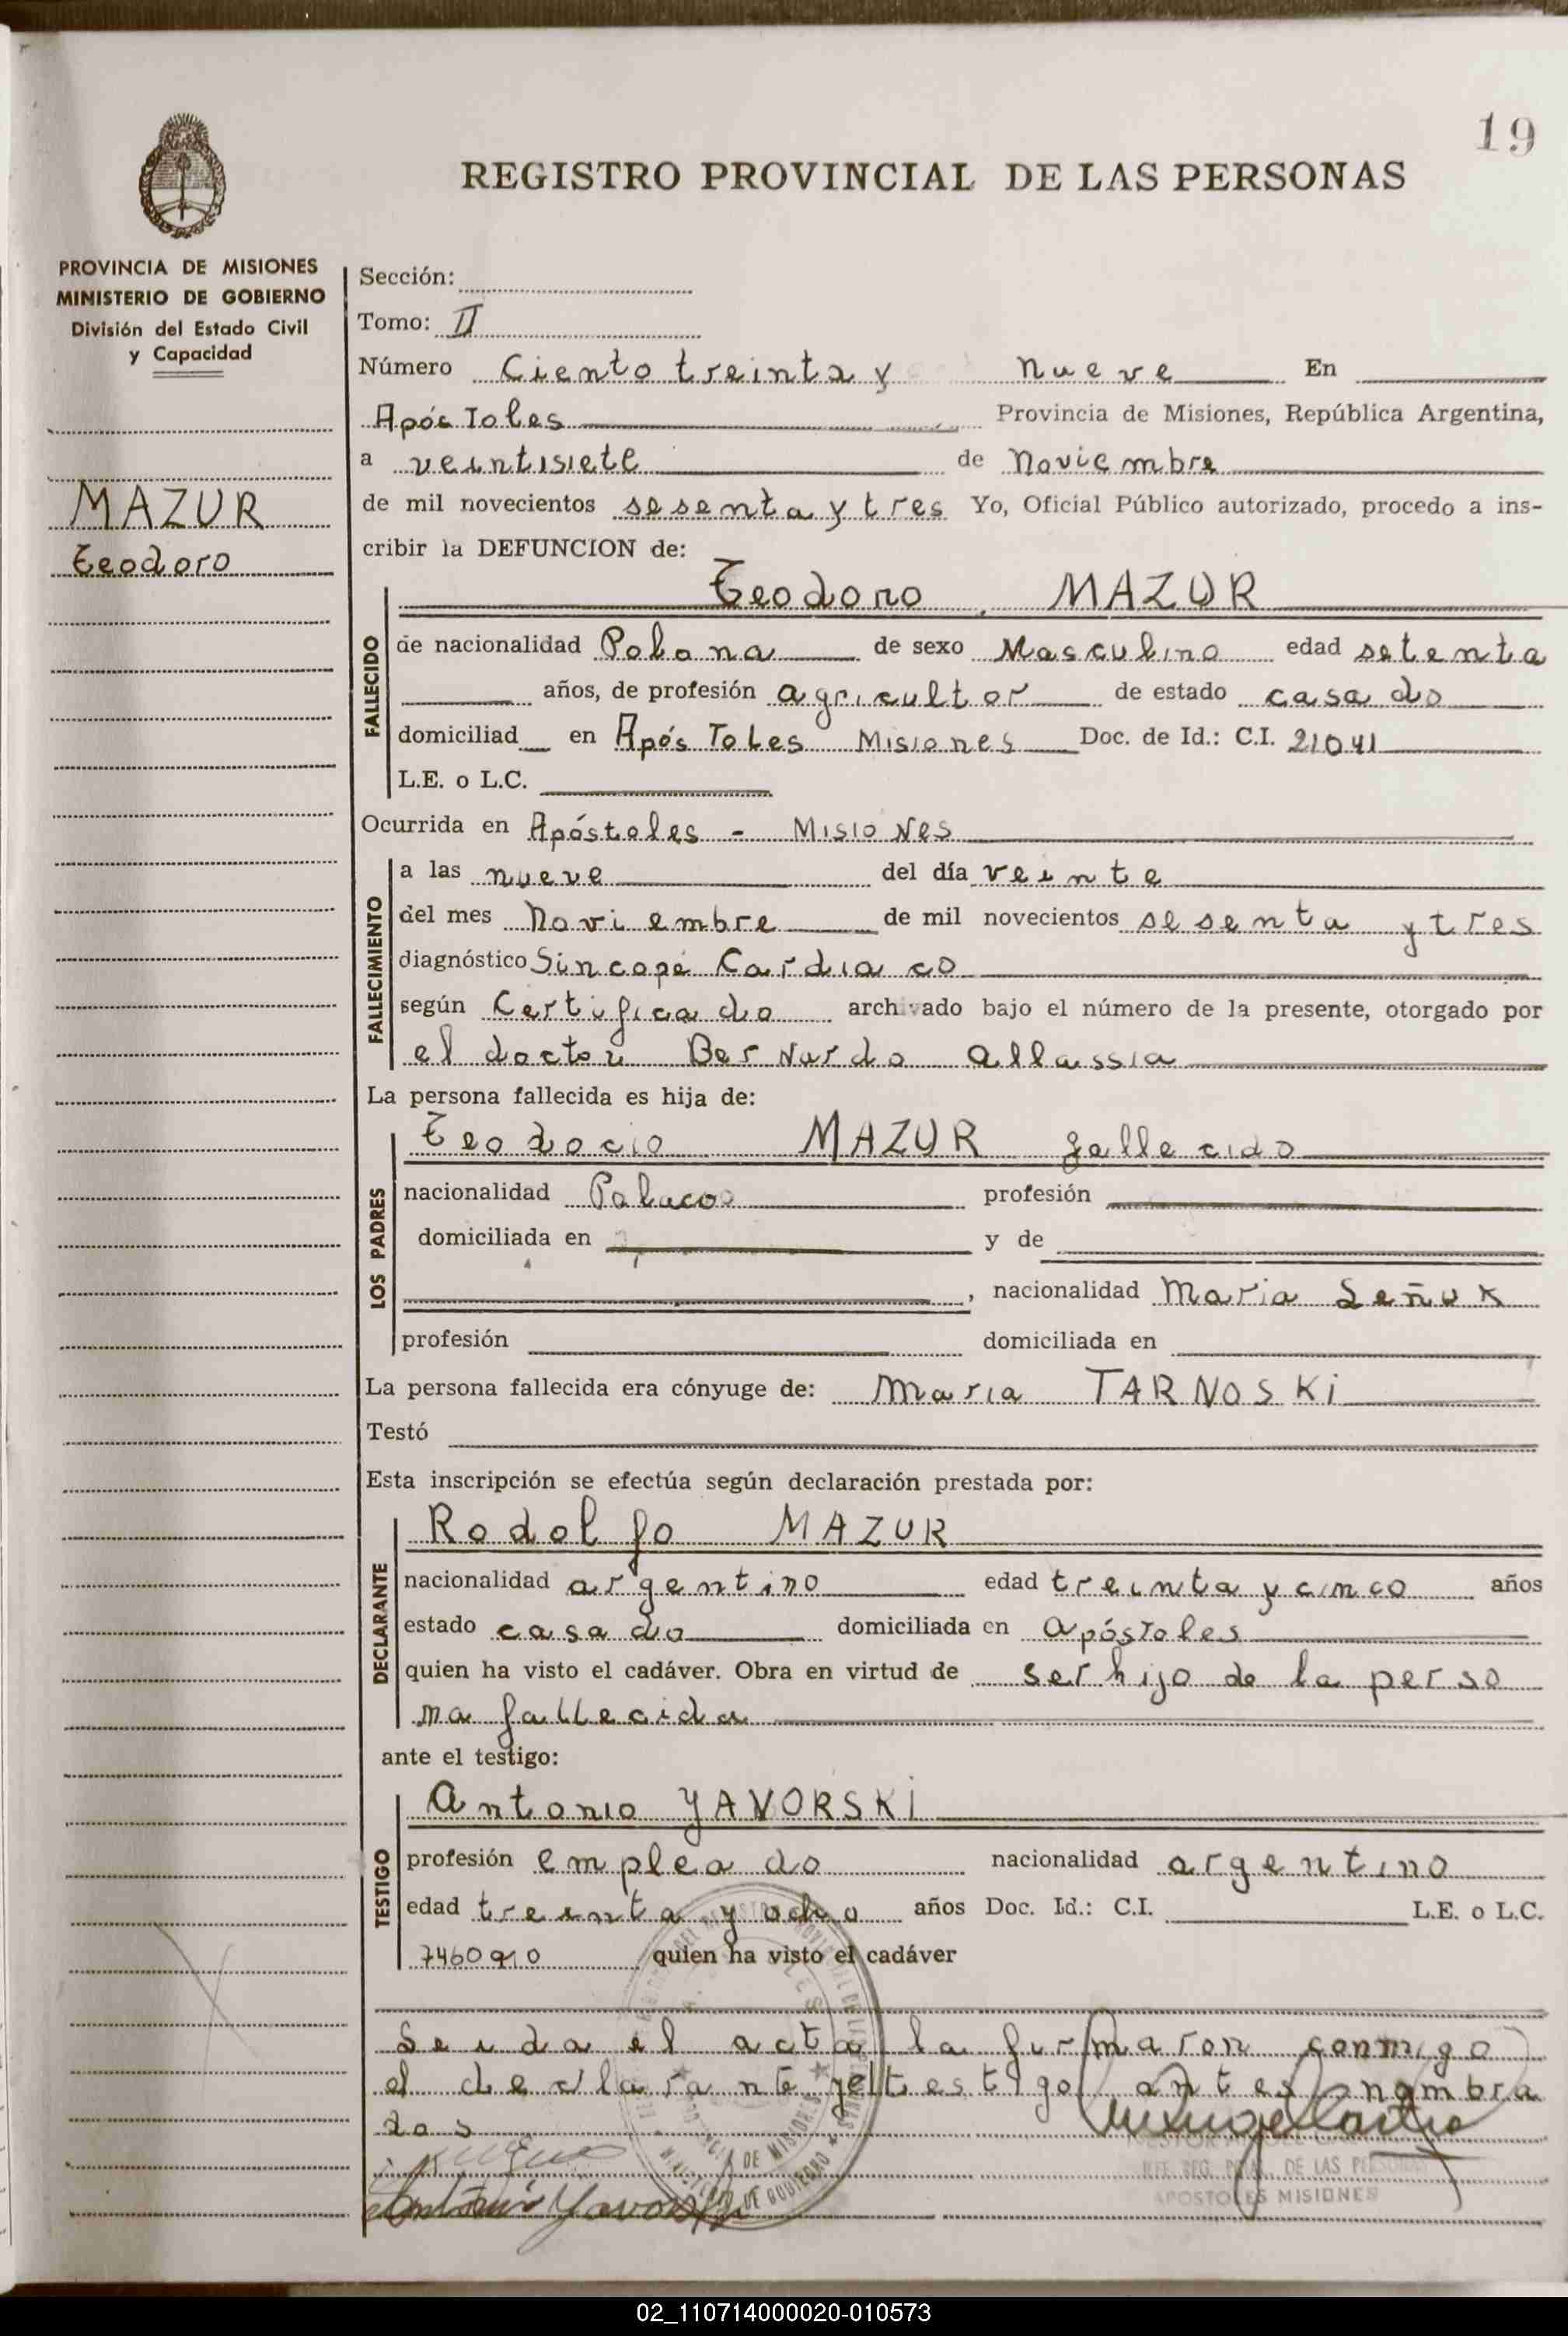 19
REGISTRO PROVINCIAL DE LAS PERSONAS
PROVINCIA DE MISIONES
MINISTERIO DE GOBIERNO
División del Estado Civil
y Capacidad
MAZUR
Teodoro
Sección:
Tomo: II
Número Ciento treinta y nueve En
Apóstoles Provincia de Misiones, República Argentina,
a veintisiete de Noviembre
de mil novecientos sesenta y tres Yo, Oficial Público autorizado, procedo a ins-
cribir la DEFUNCION de:
Teodoro MAZUR
FALLECIDO
de nacionalidad Polona de sexo Masculino edad setenta
años, de profesión agricultor de estado casado
domiciliad en Apóstoles Misiones Doc. de Id.: C.I. 21041
L.E. o L.C.
Ocurrida en Apóstoles - Misiones
FALLECIMIENTO
a las nueve del día veinte
del mes Noviembre de mil novecientos sesenta y tres
diagnóstico Sincope Cardiaco
según Certificado archivado bajo el número de la presente, otorgado por
el doctor Bernardo Allassia
La persona fallecida es hija de:
LOS PADRES
Teodocio MAZUR fallecido
nacionalidad profesión
domiciliada en y de
, nacionalidad Maria Señuk
profesión domiciliada en
La persona fallecida era cónyuge de: Maria TARNOSKi
Testó
Esta inscripción se efectúa según declaración prestada por:
DECLARANTE
Rodolfo MAZUR
nacionalidad argentino edad treinta y cinco años
estado casado domiciliada en apóstoles
quien ha visto el cadáver. Obra en virtud de ser hijo de la perso
na fallecida
ante el testigo:
TESTIGO
Antonio YAVORSKi
profesión empleado nacionalidad argentino
edad treinta y ocho años Doc. Id.: C.I. L.E. o L.C.
7460910 quien ha visto el cadáver
Leida el acta la firmaron conmigo
el declarante y el testigo antes nombra
dos
Antonio Yavorski
DE LAS
APOSTOLES MISIONES
02_110714000020-010573